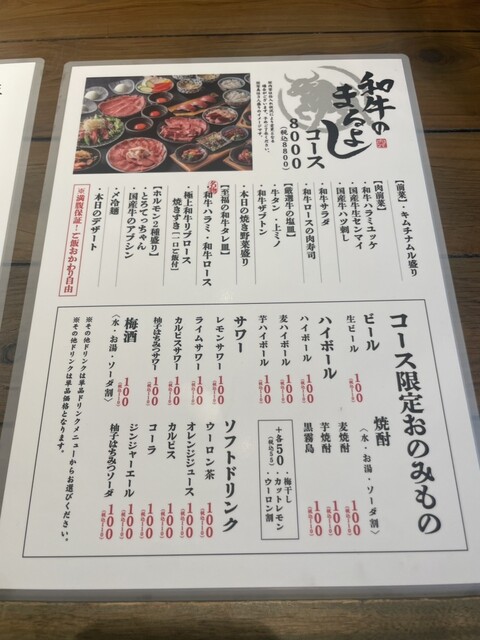 和牛の
まるよし
コース
8000
(税込8800)
【前菜】・キムチナムル盛り
【肉前菜】
・和牛ハラミユッケ
・国産牛生センマイ
・国産牛ハツ刺し
・和牛サラダ
・和牛ロースの肉寿司
【厳選牛の塩皿】
・牛タン・上ミノ
・和牛ザブトン
・本日の焼き野菜盛り
【至福の和牛タレ皿】
名物
・和牛ハラミ・和牛ロース
・極上和牛リブロース
焼きすき【一口ご飯付】
【ホルモン2種盛り】
・とろてっちゃん
・国産牛のアブシン
・〆冷麺
・本日のデザート
※満腹保証!ご飯おかわり自由
コース限定おのみもの
ビール
生ビール 100
ハイボール
ハイボール 100
麦ハイボール 100
芋ハイボール 100
サワー
レモンサワー 100
ライムサワー 100
カルピスサワー 100
柚子はちみつサワー 100
梅酒
(水・お湯・ソーダ割) 100
焼酎
(水・お湯・ソーダ割)
麦焼酎 100
芋焼酎 100
黒霧島 100
+各50
(税込55)
・梅干し
・カットレモン
・ウーロン割
ソフトドリンク
ウーロン茶 100
オレンジジュース 100
カルピス 100
コーラ 100
ジンジャーエール 100
柚子はちみつソーダ 100
※その他ドリンクは単品ドリンクメニューからお選びください。
※その他ドリンクは単品価格となります。